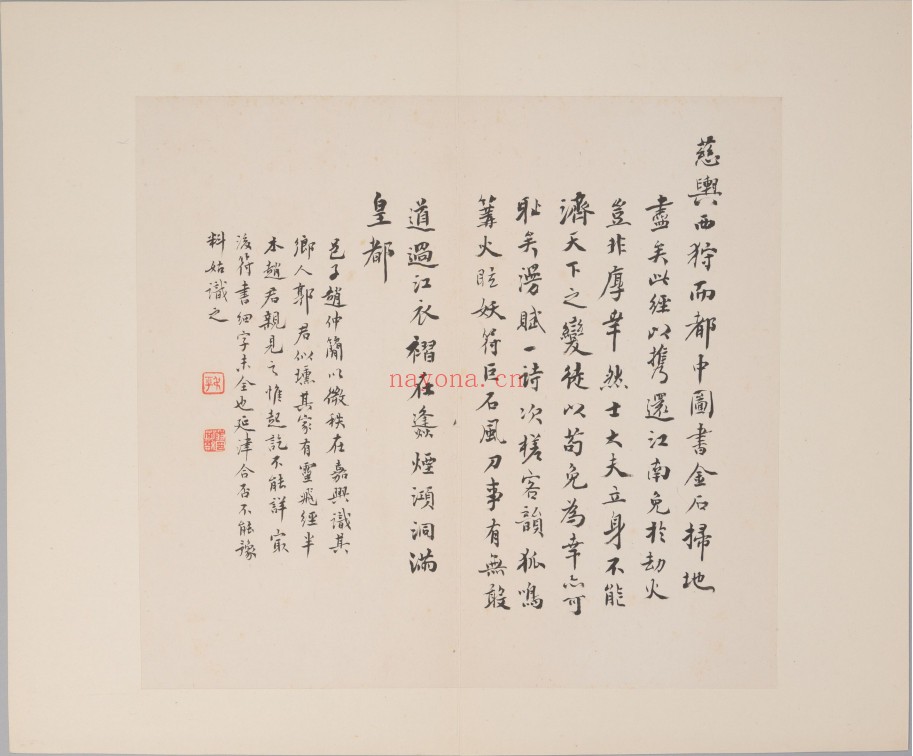 慈輿西狩而都中圖書金石掃地
盡矣此經以攜還江南免於劫火
豈非厚幸然士大夫立身不能
濟天下之變徒以苟免為幸亦可
耻矣漫賦一詩次槎客韻狐鳴
篝火眩妖符巨石風刀事有無敢
道過江衣褶在蠭煙澒洞滿
皇都
邑子趙仲簡以微秩在嘉興識其
鄉人郭君似壎其家有靈飛經半
本趙君親見之惟起訖不能詳㝡
後符書細字未全也延津合否不能豫
料姑識之
nayona.cn